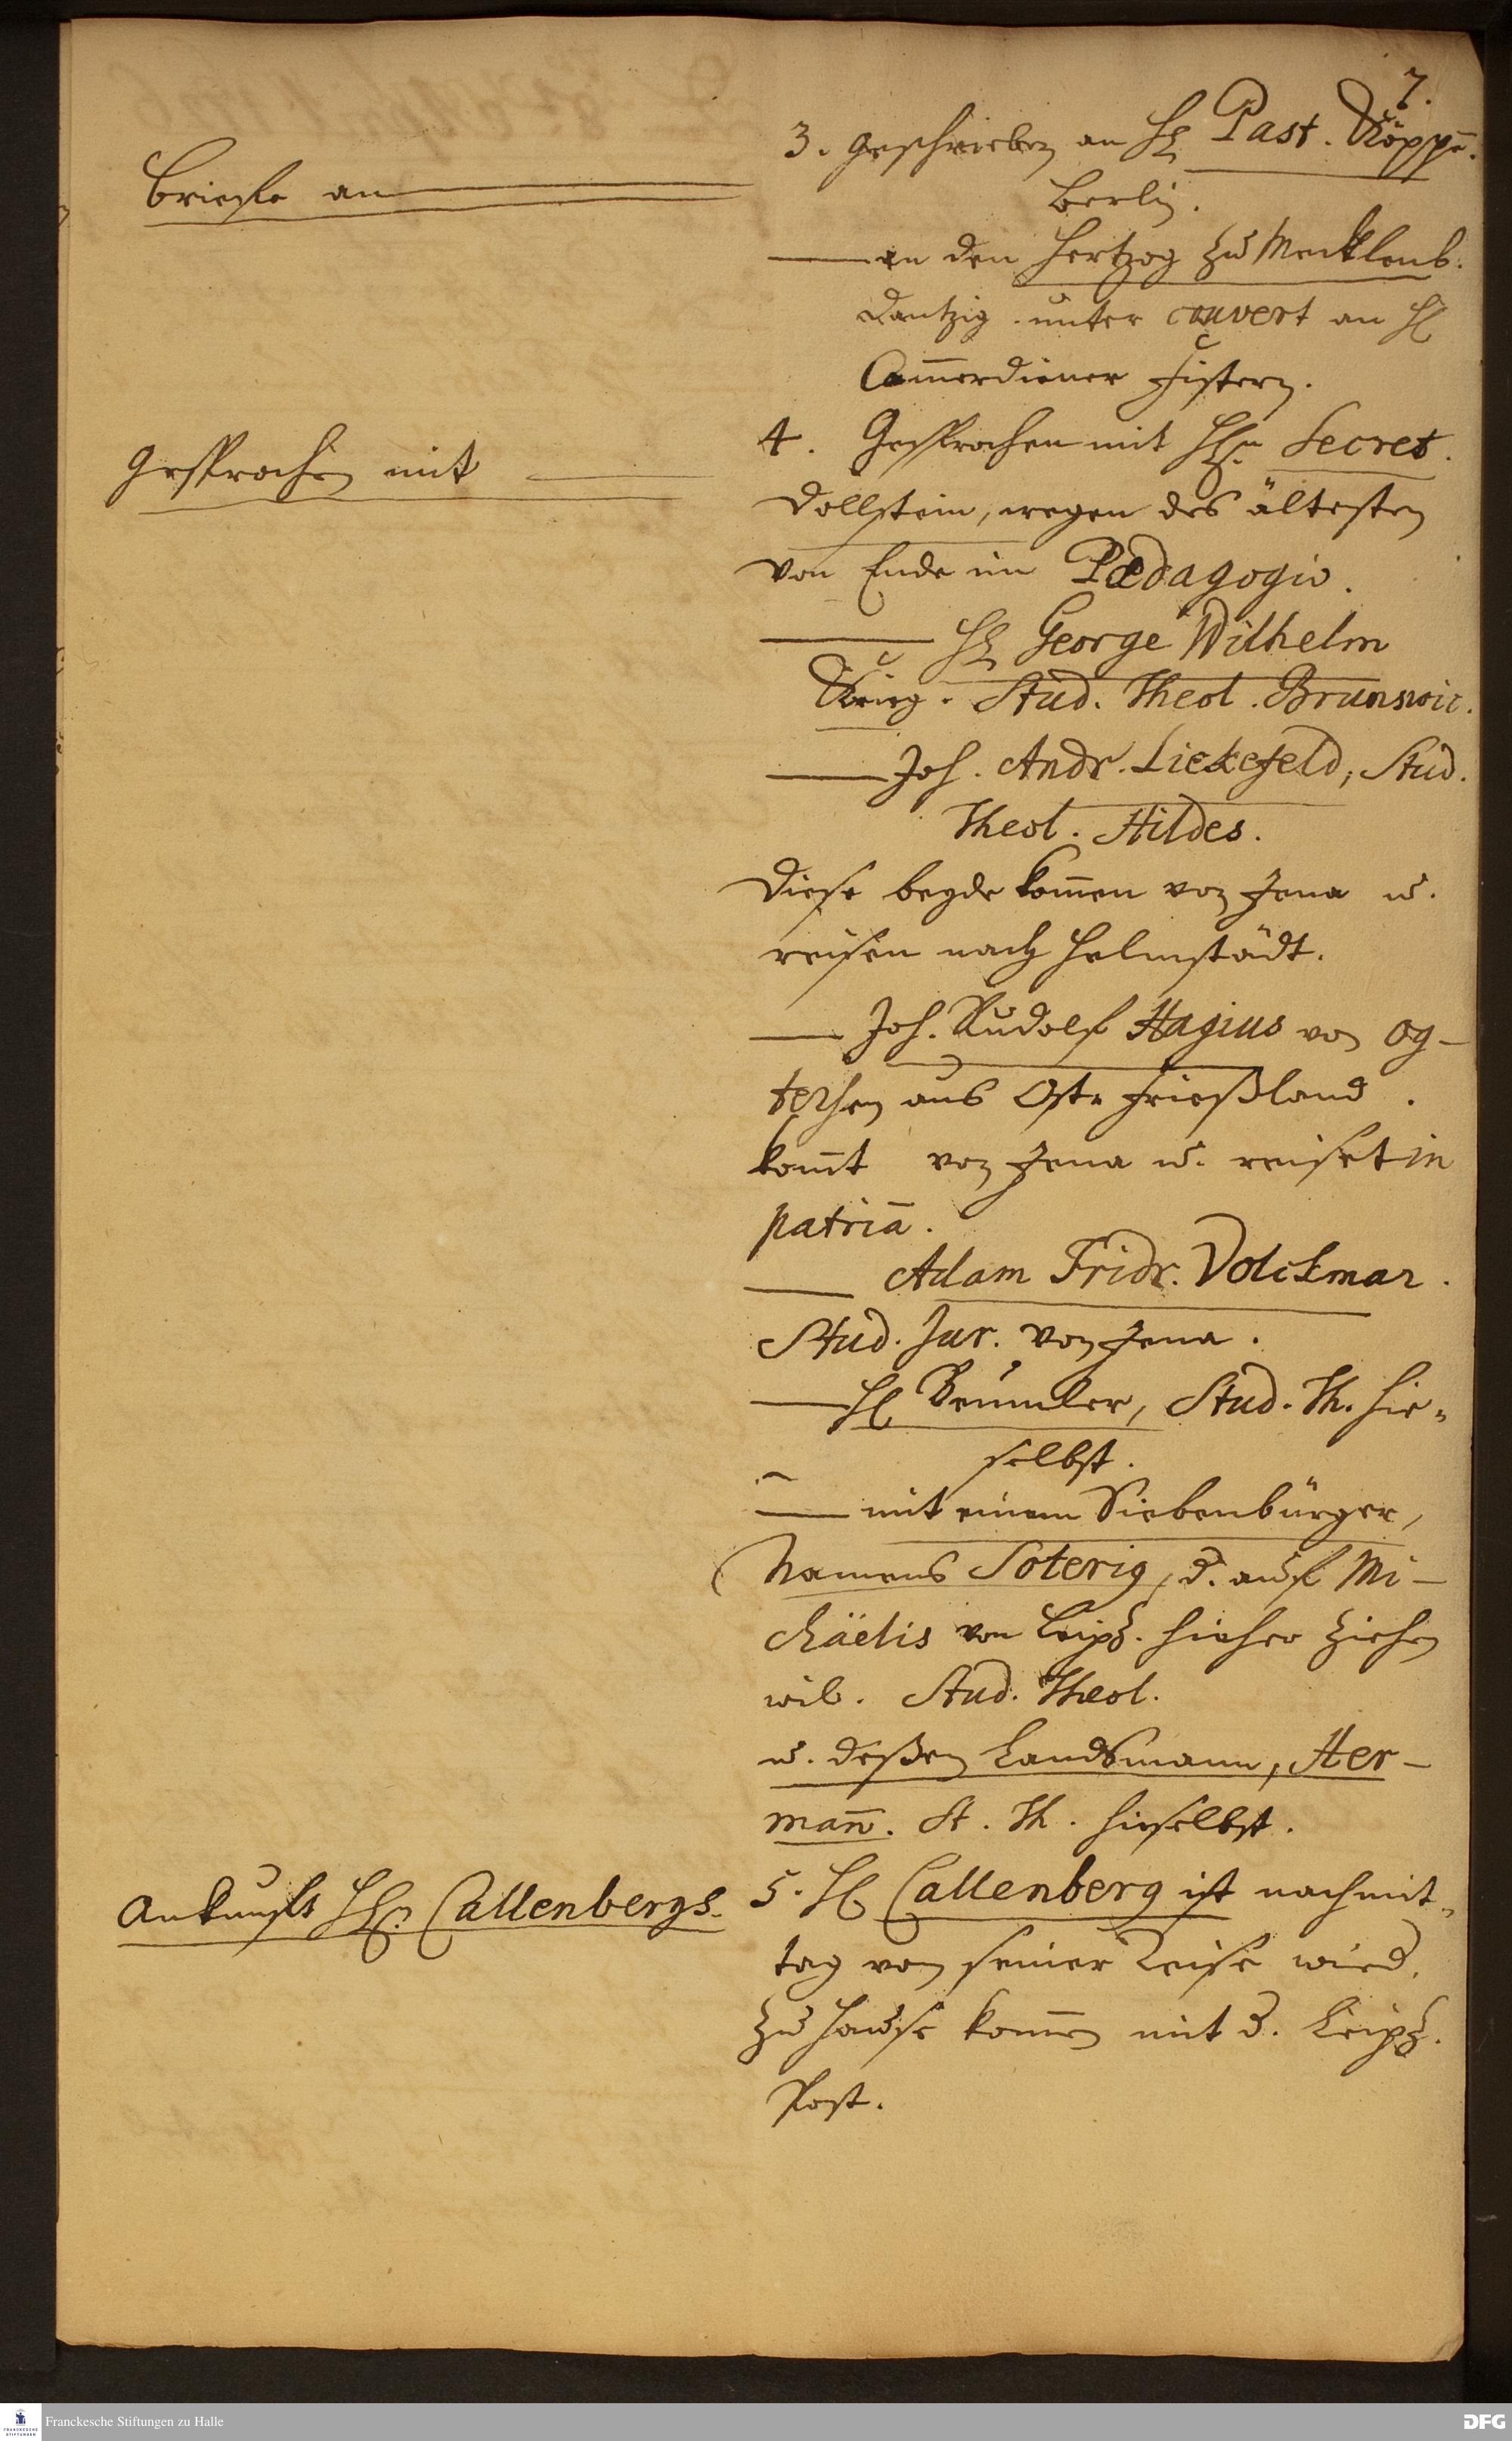 7.
3. geschrieben an H. Past. Köppē.
Briefe an
Berlin.
an den Hertzog zu Mecklenb.
Dantzig unter couvert an H.
Cam̄erdiener Fistern.
4. Gesprochen mit H.n Secret.
Gesprochen mit
Dollstein, wegen des ältesten
von Ende im Pædagogio.
H. George Wilhelm
Krieg. Stud. Theol. Brunswic.
Joh. Andr. Liekefeld, Stud.
Theol. Hildes.
Diese beyde kom̄en von Jena u.
reisen nach Helmstädt.
Joh. Rudolf Hagius von Og-
tersen aus Ost-Frießland.
kom̄t von Jena u. reiset in
patriā.
Adam Fridr. Volckmar.
Stud. Jur. von Jena.
H. Beumler, Stud. Th. hie-
selbst.
mit einem Siebenbürger,
Namens Soterig, d. auf Mi-
chäelis von Leipz. hieher ziehen
wil. Stud. Theol.
u. deßen Landsmann, Her-
man̄. St. Th. hieselbst.
Ankunft H.n Callenbergs.
5. H. Callenberg ist nachmit-
tag von seiner Reise wied.
zu Hause kom̄en mit d. Leipz.
Post.
Franckesche Stiftungen zu Halle
FRANCKESCHE
STIFTUNGEN
DFG